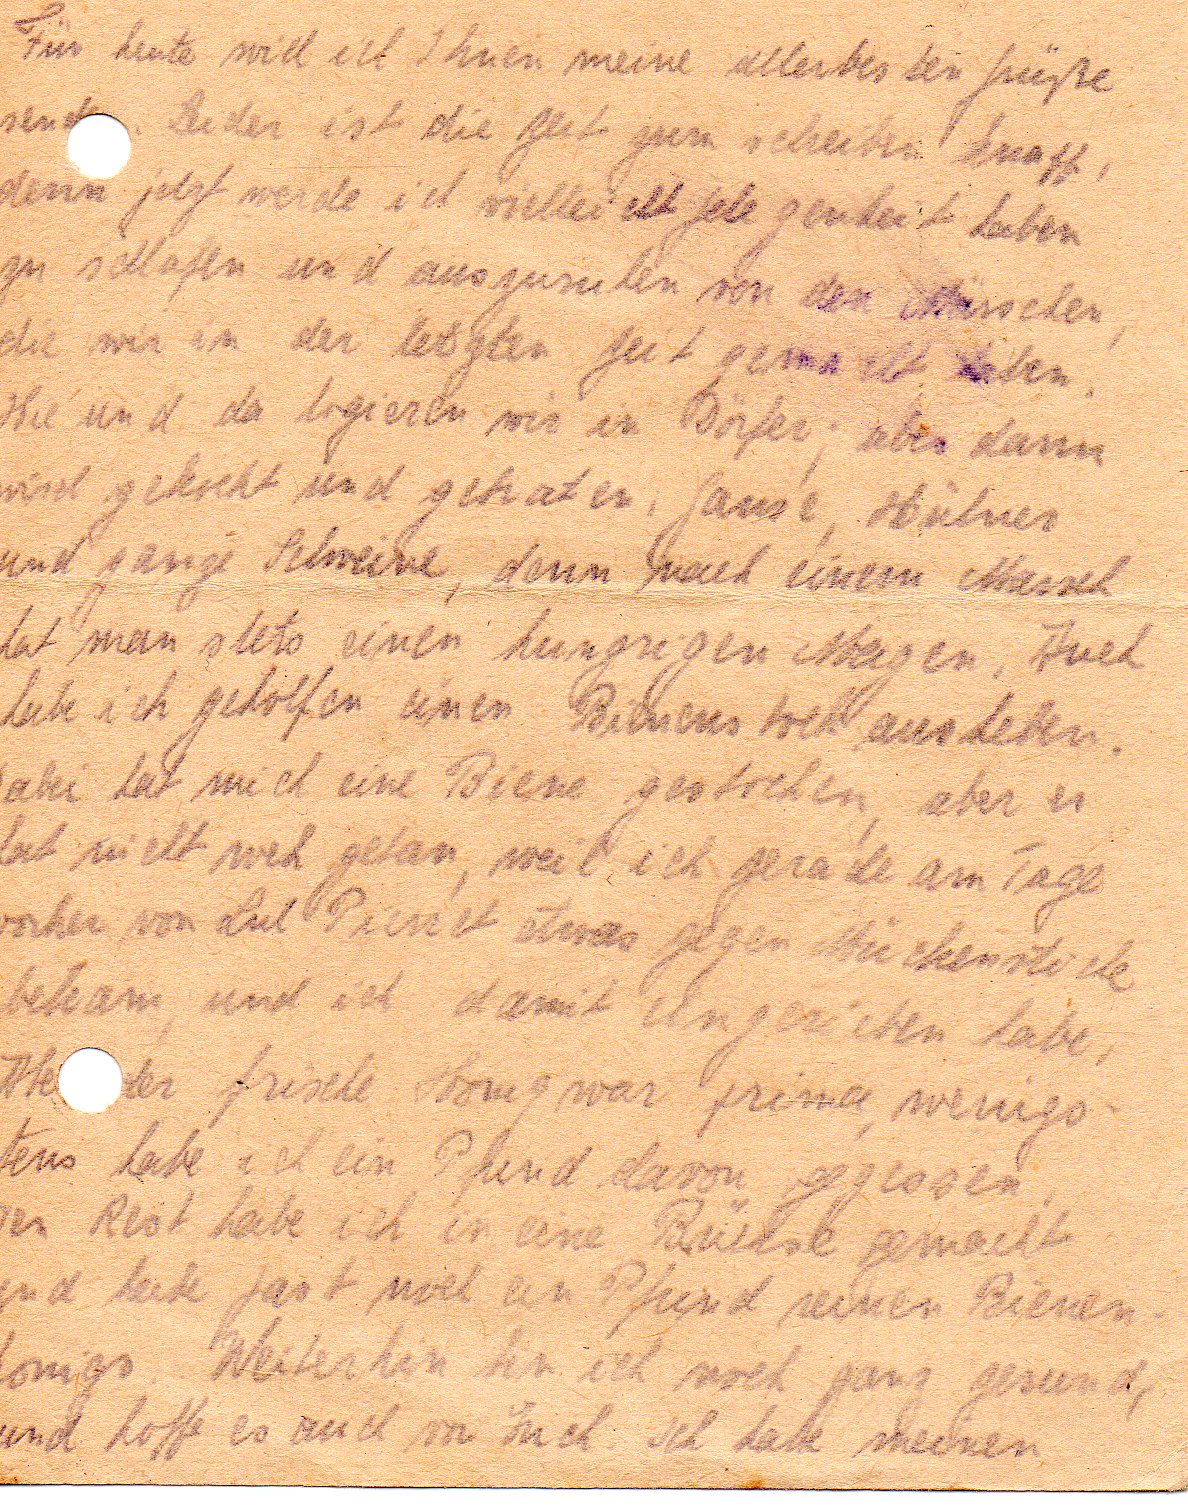 Für heute will ich Ihnen meine allerbesten Grüße
senden. Leider ist die Zeit zum schreiben knapp,
denn jetzt werde ich vielleicht Gelegenheit haben
zu schlafen und auszuruhen von den Märschen,
die wir in der letzten Zeit gemacht haben.
Hie und da logieren wir in Dörfer; aber dann
wird gekocht und gebraten. Gänse, Hühner
und ganze Schweine, denn nach einem Marsch
hat man stets einen hungrigen Magen. Auch
habe ich geholfen einen Bienenstock ausheben.
Dabei hat mich eine Biene gestochen, aber es
hat nicht weh getan, weil ich gerade am Tage
vorher von Lul Pierret etwas gegen Mückenstiche
bekam, und ich damit eingerieben habe,
Aber der frische Honig war prima, wenigs-
tens habe ich ein Pfund davon gegessen,
den Rest habe ich in eine Büchse gemacht
und habe fast noch ein Pfund reinen Bienen-
honigs. Weiterhin bin ich noch ganz gesund,
und hoffe es auch von Euch. Ich habe meinen